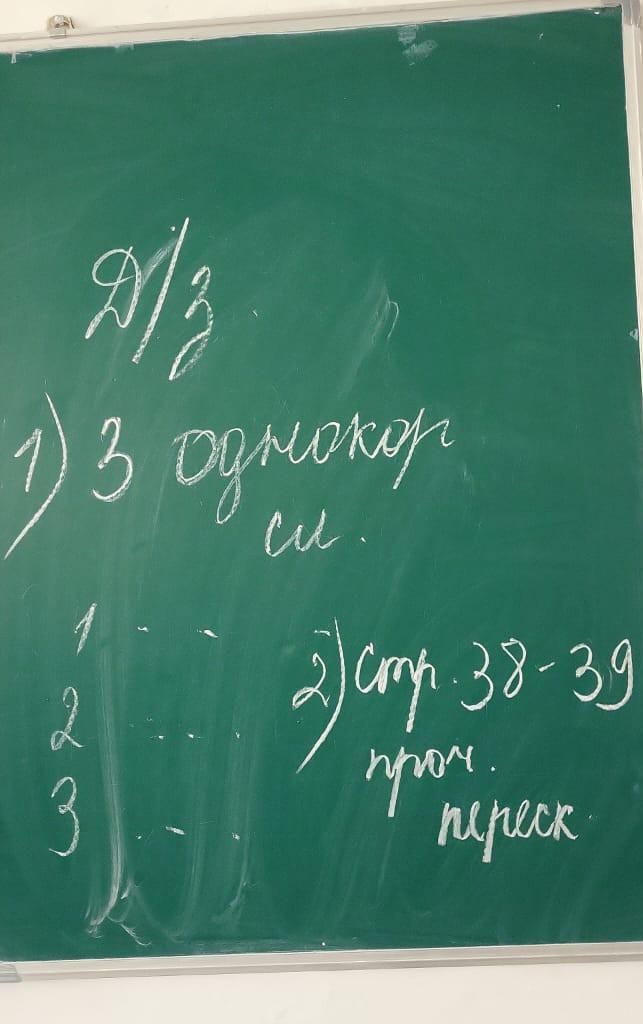 Д/з
1) 3 однокор
сл.
1 - - -
2 - - -
3 - - -
2) стр. 38-39
проч.
переск.